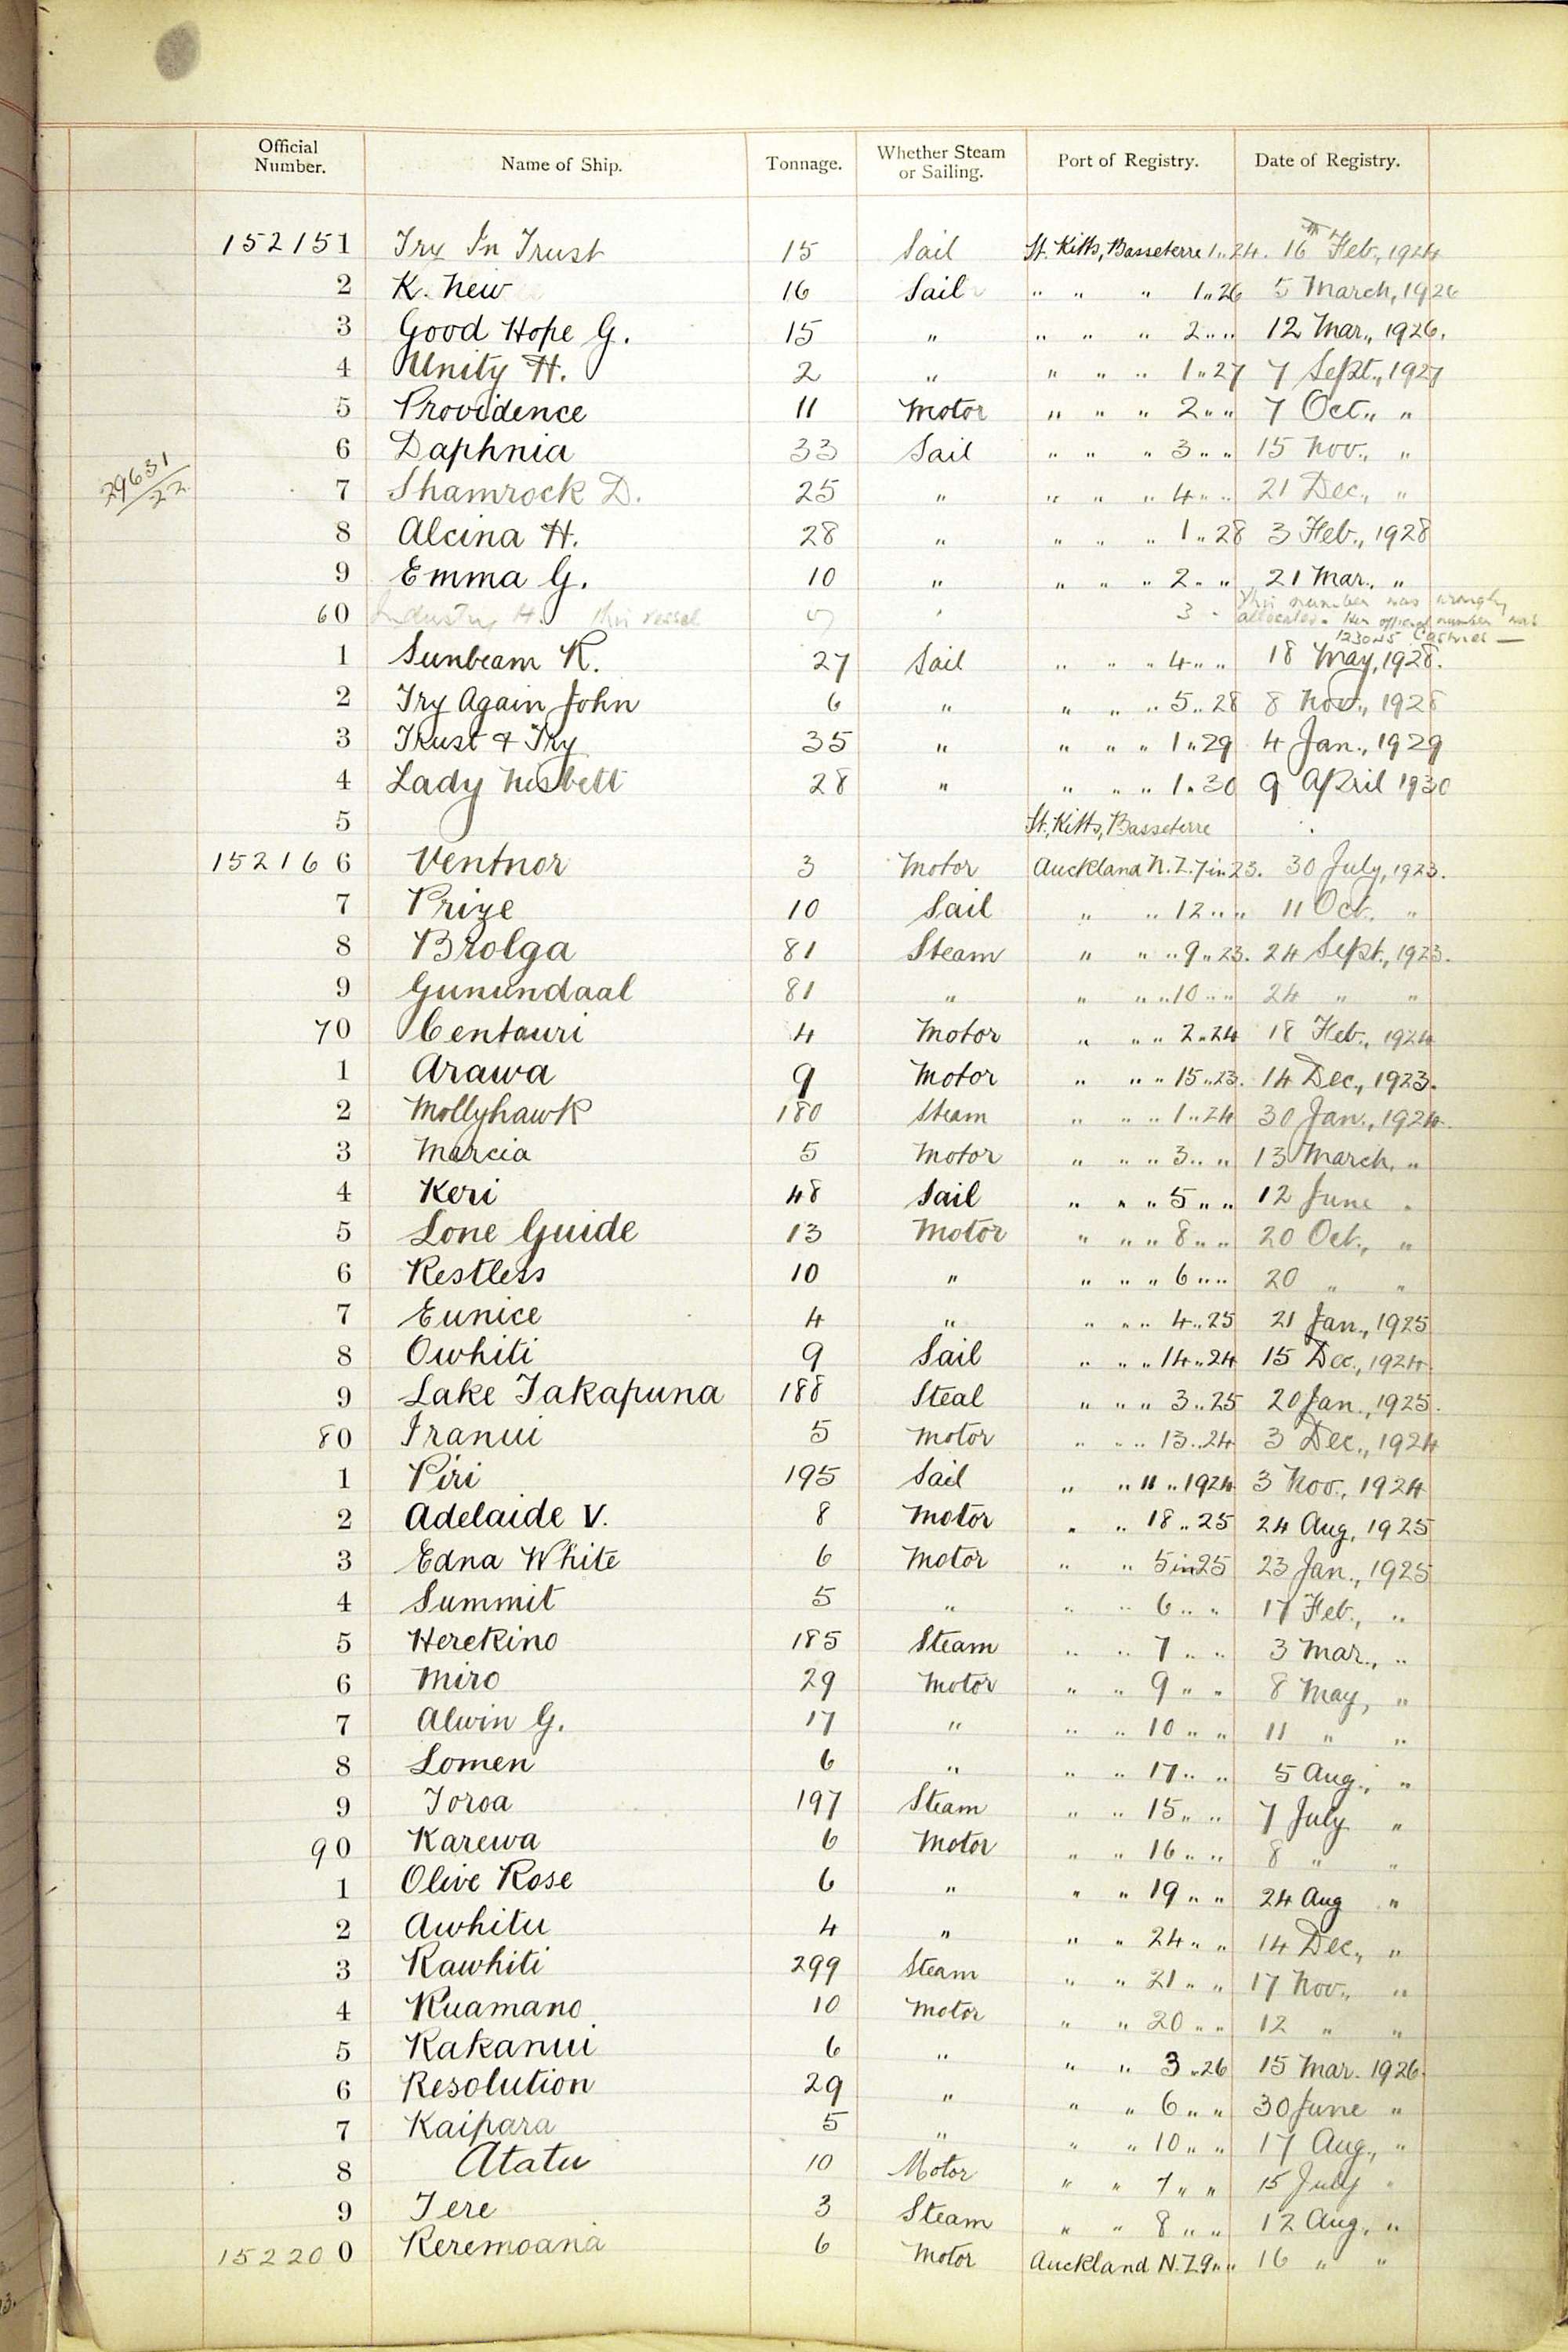 Official Number. Name of Ship. Tonnage. Whether Steam or Sailing. Port of Registry. Date of Registry.
152151 Try In Trust 15 Sail St. Kitts, Basseterre 1 " 24. 16th Feb., 1924
2 K. New 16 Sail " " " 1 " 26 5 March, 1926
3 Good Hope G. 15 " " " " 2 " " 12 Mar., 1926.
4 Unity H. 2 " " " " 1 " 27 7 Sept., 1927
5 Providence 11 Motor " " " 2 " " 7 Oct., "
6 Daphnia 33 Sail " " " 3 " " 15 Nov., "
29631/22 7 Shamrock D. 25 " " " " 4 " " 21 Dec., "
8 Alcina H. 28 " " " " 1 " 28 3 Feb., 1928
9 Emma G. 10 " " " " 2 " " 21 Mar., "
60 Industry H. This vessel " 3 " This number was wrongly
allocated. Her official number was
123045 Castries —
1 Sunbeam R. 27 Sail " " " 4 " " 18 May, 1928.
2 Try Again John 6 " " " " 5 " 28 8 Nov., 1928
3 Trust & Try 35 " " " " 1 " 29 4 Jan., 1929
4 Lady Nisbett 28 " " " " 1 " 30 9 April 1930
5 St. Kitts, Basseterre
152166 Ventnor 3 Motor Auckland N.Z. 7 in 23. 30 July, 1923.
7 Prize 10 Sail " " 12 " " 11 Oct. "
8 Brolga 81 Steam " " " 9 " 23. 24 Sept., 1923.
9 Gunundaal 81 " " " " 10 " " 24 " "
70 Centauri 4 Motor " " " 2 " 24 18 Feb., 1924
1 Arawa 9 Motor " " " 15 " 23. 14 Dec., 1923.
2 Mollyhawk 180 Steam " " " 1 " 24 30 Jan., 1924.
3 Marcia 5 Motor " " " 3 " " 13 March, "
4 Keri 48 Sail " " " 5 " " 12 June "
5 Lone Guide 13 Motor " " " 8 " " 20 Oct., "
6 Restless 10 " " " " 6 " " 20 " "
7 Eunice 4 " " " " 4 " 25 21 Jan., 1925
8 Owhiti 9 Sail " " " 14 " 24 15 Dec., 1924
9 Lake Takapuna 188 Steal " " " 3 " 25 20 Jan., 1925.
80 Iranui 5 Motor " " " 13 " 24 3 Dec., 1924
1 Piri 195 Sail " " 11 " 1924 3 Nov., 1924
2 Adelaide V. 8 Motor " " 18 " 25 24 Aug, 1925
3 Edna White 6 Motor " " 5 in 25 23 Jan., 1925
4 Summit 5 " " " 6 " " 17 Feb., "
5 Herekino 185 Steam " " 7 " " 3 Mar., "
6 Miro 29 Motor " " 9 " " 8 May, "
7 Alwin G. 17 " " " 10 " " 11 " "
8 Lomen 6 " " " 17 " " 5 Aug., "
9 Toroa 197 Steam " " 15 " " 7 July "
90 Karewa 6 Motor " " 16 " " 8 " "
1 Olive Rose 6 " " " 19 " " 24 Aug "
2 Awhitu 4 " " " 24 " " 14 Dec., "
3 Rawhiti 299 Steam " " 21 " " 17 Nov., "
4 Ruamano 10 Motor " " 20 " " 12 " "
5 Kakanui 6 " " " 3 " 26 15 Mar. 1926.
6 Resolution 29 " " " 6 " " 30 June "
7 Kaipara 5 " " " 10 " " 17 Aug., "
8 Atatu 10 Motor " " 7 " " 15 July "
9 Tere 3 Steam " " 8 " " 12 Aug, "
152200 Keremoana 6 Motor Auckland N.Z. 9 " " 16 " "